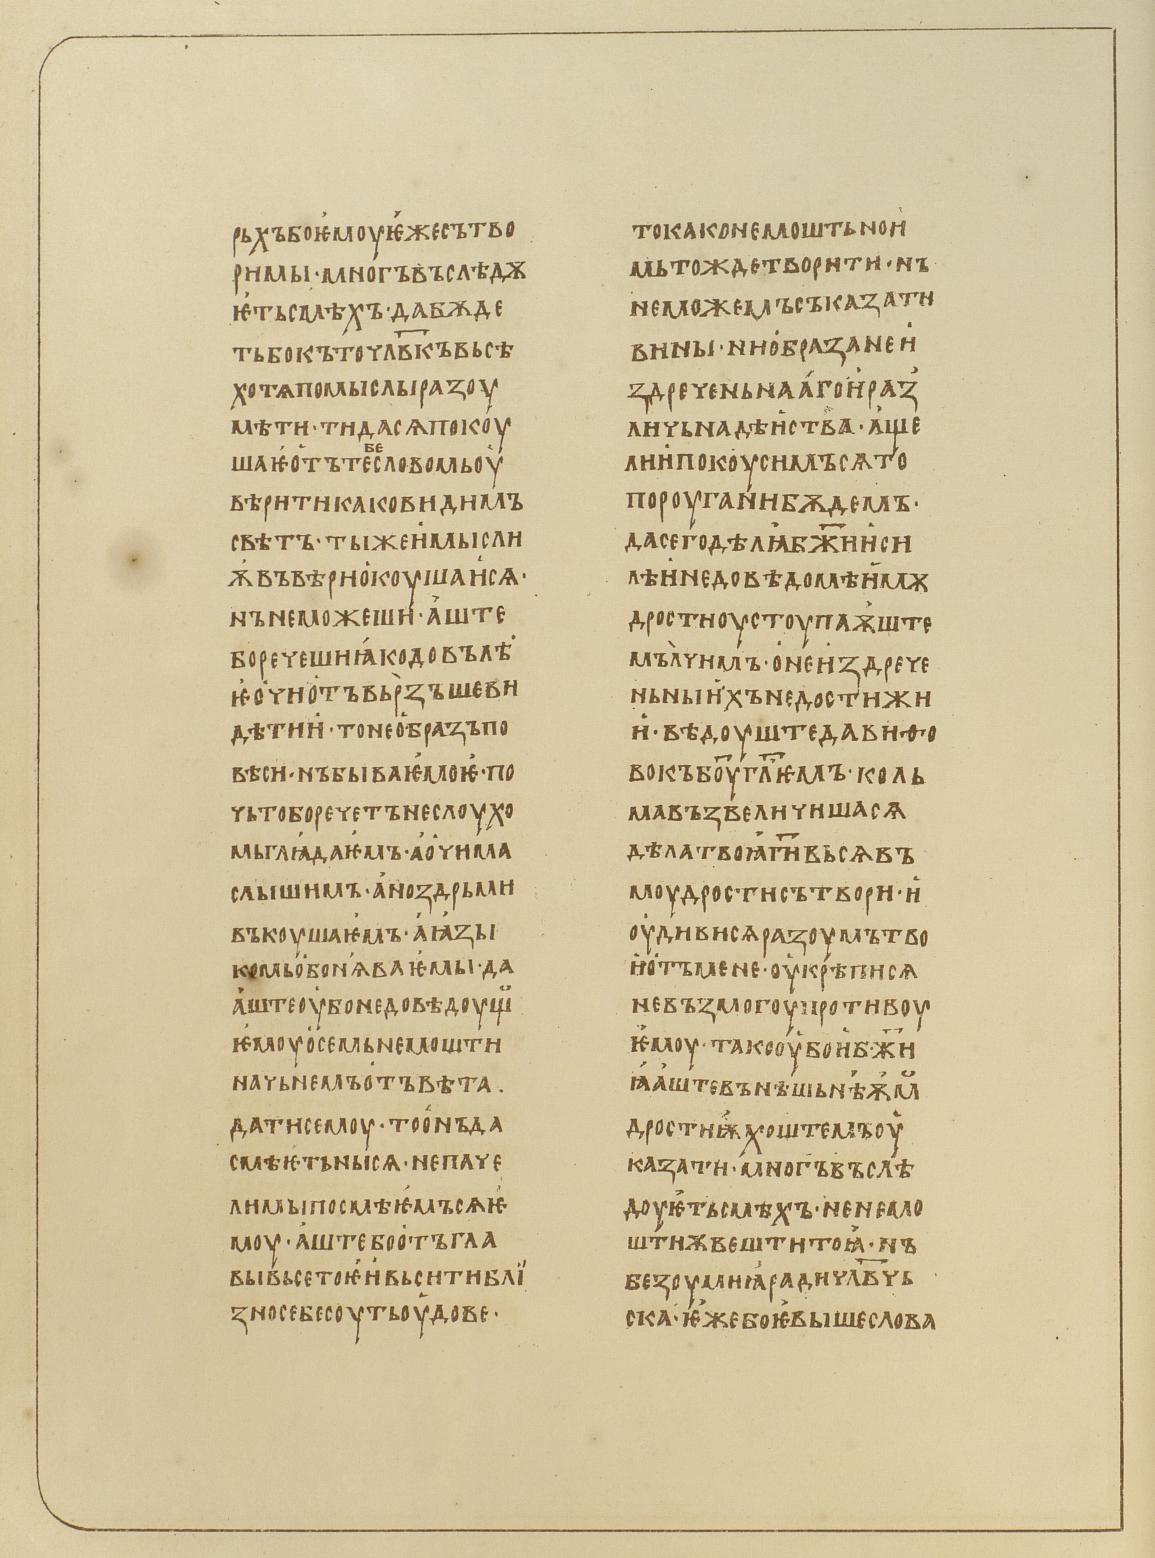 рьхъбоѥмоуѥжесътво
римы·многъвъслѣдѫ
ѥтьсмѣхъ·дабѫде
тьбокъточл҃вкъвьсѣ
хотѧпомыслыразоу
мѣти·тидасѧпокоу
шаѥотътебесловомьоу
вѣритикаковидимъ
свѣтъ·тыжеимысли
ѫвъвѣрнокоушаисѧ·
нънеможеши·аште
боречешиꙗкодовълѣ
ѥочиотъвьрзъшеви
дѣтии·тонеобразъпо
вѣси·нъбываѥмоѥ·по
чьтоборечетънеслоухо
мьглѧдаѥмъ·аочима
слышимъ·аноздрьми
въкоушаѥмъ·аѩзы
комьобонѧваѥмы·да
аштеоубонедовѣдоущ
ѥмоуосемьнемошти
начьнемъотъвѣта.
датисемоу·тоонъда
смѣѥтьнысѧ·непаче
лимыпосмѣѥмъсѧѥ
моу·аштебоотъгла
вывьсетоѥивьситибли
зносебесоутьоудове·
токаконемоштьнои
мьтождетворити·нъ
неможемъсъказати
вины·ниобразанеи
здреченьнааагоираз
личьнадѣиства·аще
лиипокоусимъсѧто
пороуганибѫдемъ·
дасегодѣлꙗб҃жииси
лѣинедовѣдомѣимѫ
дростиоустоупаѫште
мълчимъ·онеиздрече
ньныихънедостижи
и·вѣдоуштедавиѳо
вокъб҃оугл҃ѥмъ·коль
мавъзвеличишасѧ
дѣлатвоꙗг҃ивьсѧвъ
моудростисътвори·и
оудивисѧразоумътво
иотъмене·оукрѣписѧ
невъзмогоупротивоу
ѥмоу·такооубоиб҃жи
ꙗаштевънѣшьнѣѫм
дростиѭхоштемъоу
казати·многъвъслѣ
доуѥтьсмѣхъ·ненемо
штиѫвештитоꙗ·нъ
безоумиꙗрадичл҃вчь
ска·ѥжебоѥвышеслова